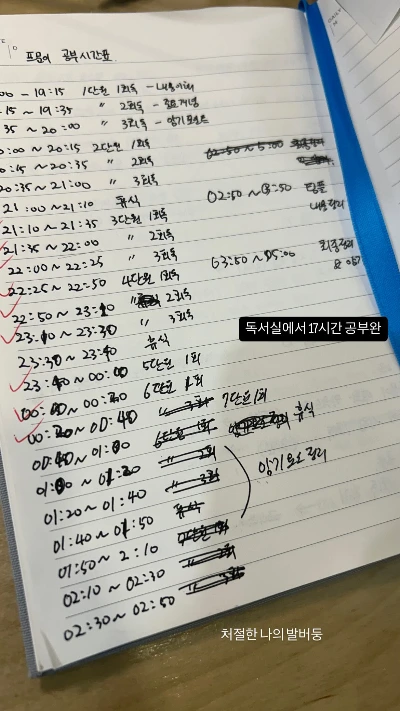 공부시간표
00 ~ 19:15 1단원 1회독 - 내용이해
15 ~ 19:35 〃 2회독
35 ~ 20:00 〃 3회독 - 암기
:00 ~ 20:15 2단원 1회독
0:15 ~ 20:35 〃 2회독
20:35 ~ 21:00 〃 3회독
21:00 ~ 21:10 휴식
21:10 ~ 21:35 3단원 1회독
21:35 ~ 22:00 〃 2회독
22:00 ~ 22:25 〃 3회독
22:25 ~ 22:50 4단원 1회독
22:50 ~ 23:10 2회독
23:10 ~ 23:30 〃 3회독
23:30 ~ 23:40 휴식
23:40 ~ 00:00 5단원 1회
00:00 ~ 00:20 6단원 1회
00:20 ~ 00:40 7단원 1회
00:40 ~ 01:00 휴식
01:00 ~ 01:20
01:20 ~ 01:40
01:40 ~ 01:50
01:50 ~ 2:10
02:10 ~ 02:30
02:30 ~ 02:50
02:50 ~ 03:50
03:50 ~ 05:00 최종정리
독서실에서 17시간 공부완
처절한 나의 발버둥